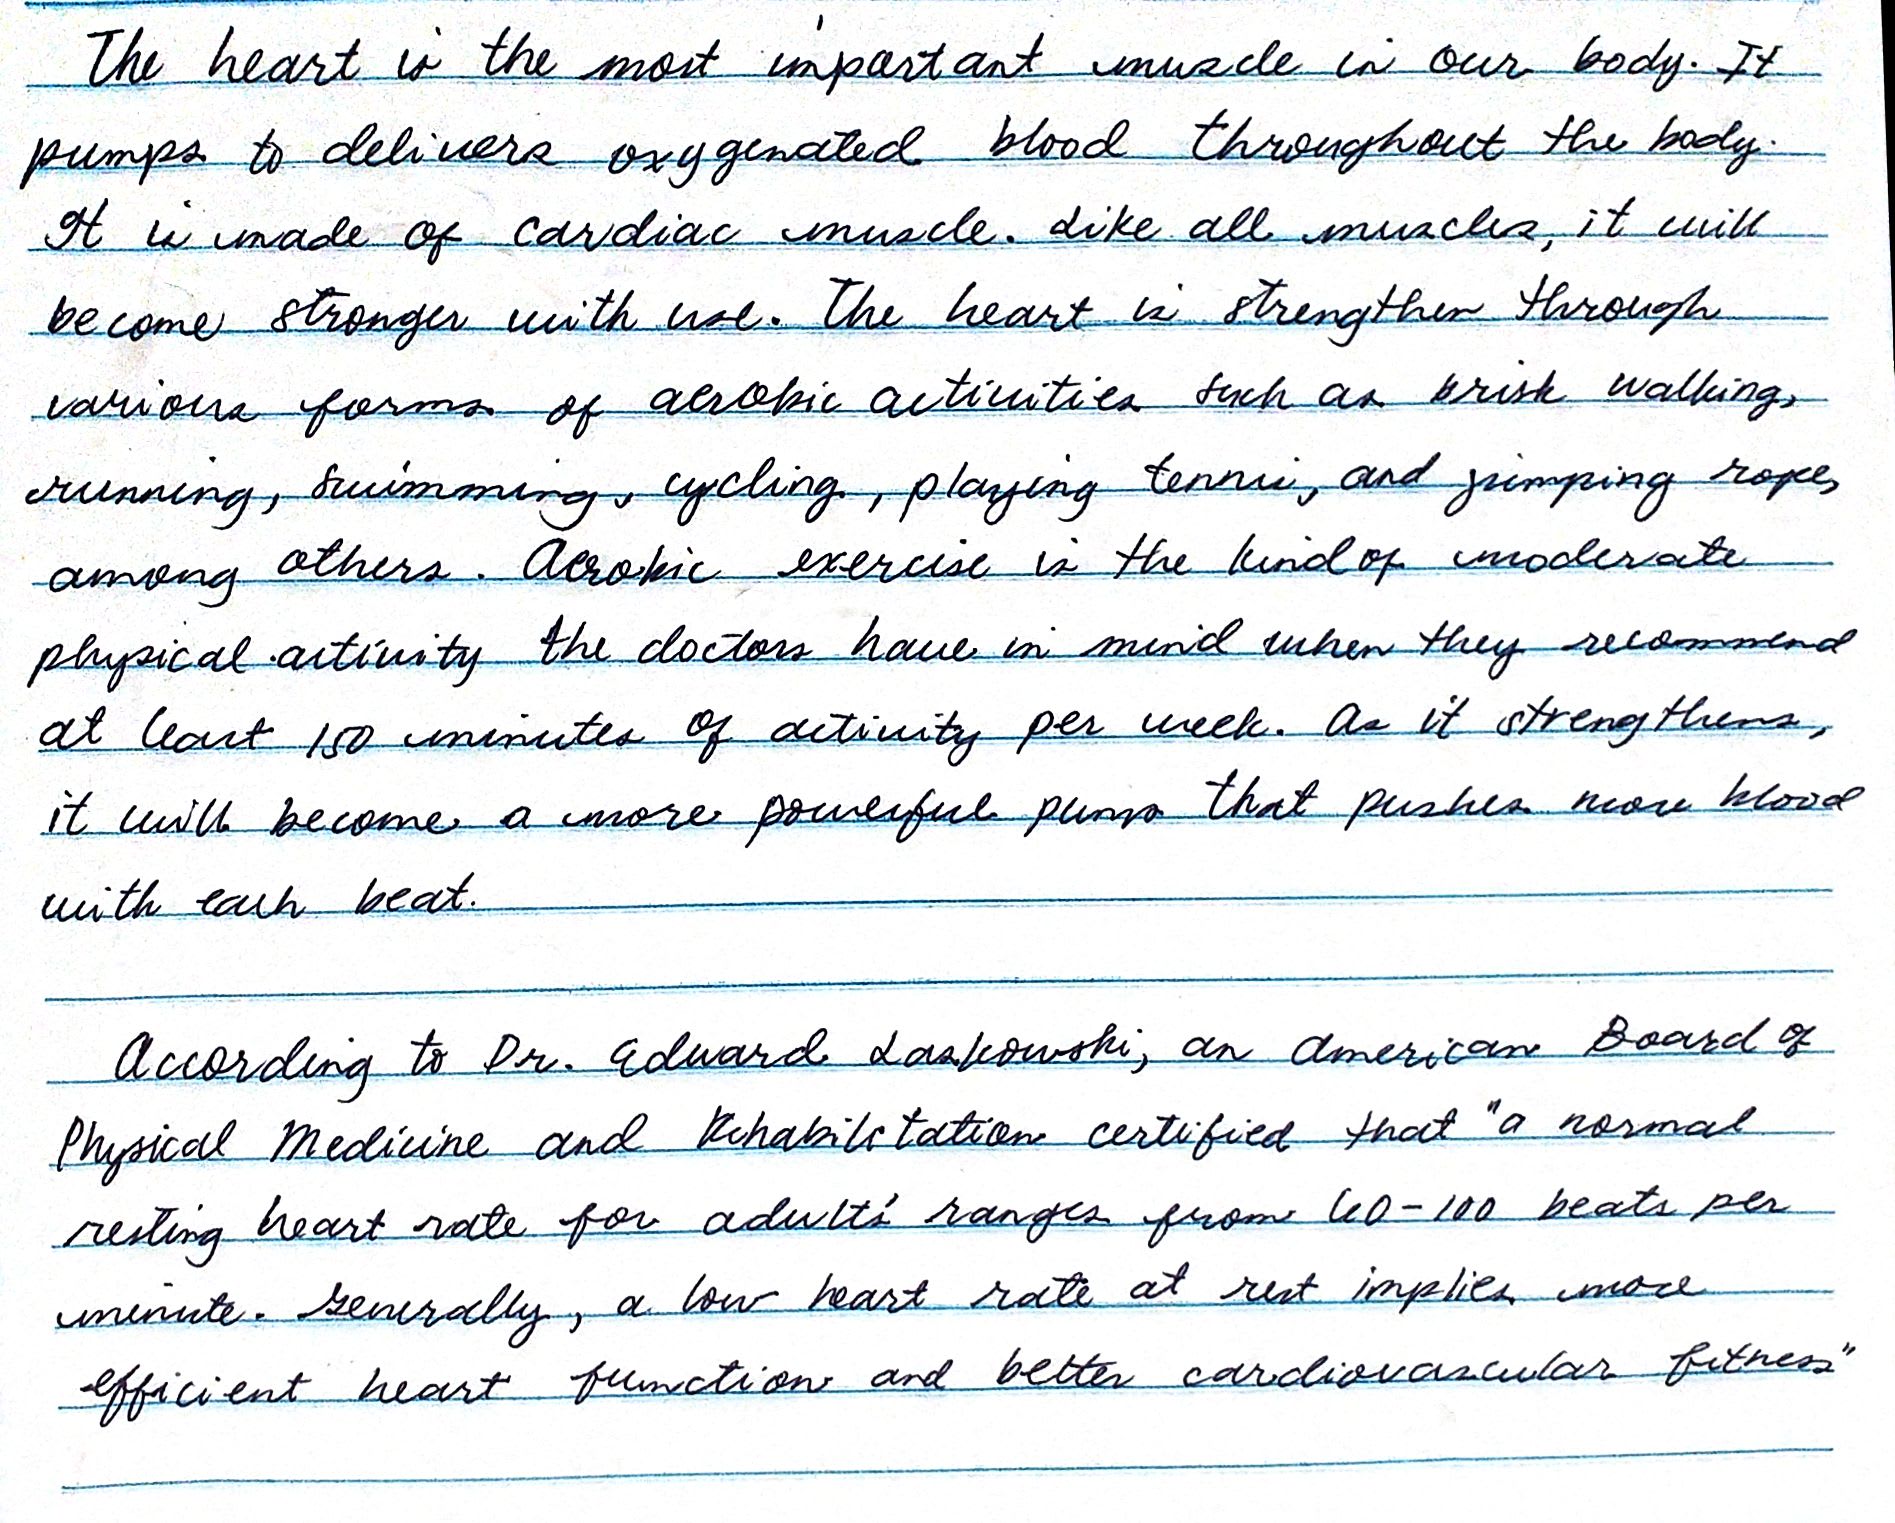 The heart is the most important muscle in our body. It
pumps to delivers oxygenated blood throughout the body.
It is made of cardiac muscle. Like all muscles, it will
become stronger with use. The heart is strengthen through
various forms of aerobic activities such as brisk walking,
running, swimming, cycling, playing tennis, and jumping rope,
among others. Aerobic exercise is the kind of moderate
physical activity the doctors have in mind when they recommend
at least 150 minutes of activity per week. As it strengthens,
it will become a more powerful pump that pushes more blood
with each beat.
According to Dr. Edward Laskowski, an American Board of
Physical Medicine and Rehabilitation certified that "a normal
resting heart rate for adults' ranges from 60-100 beats per
minute. Generally, a low heart rate at rest implies more
efficient heart function and better cardiovascular fitness"